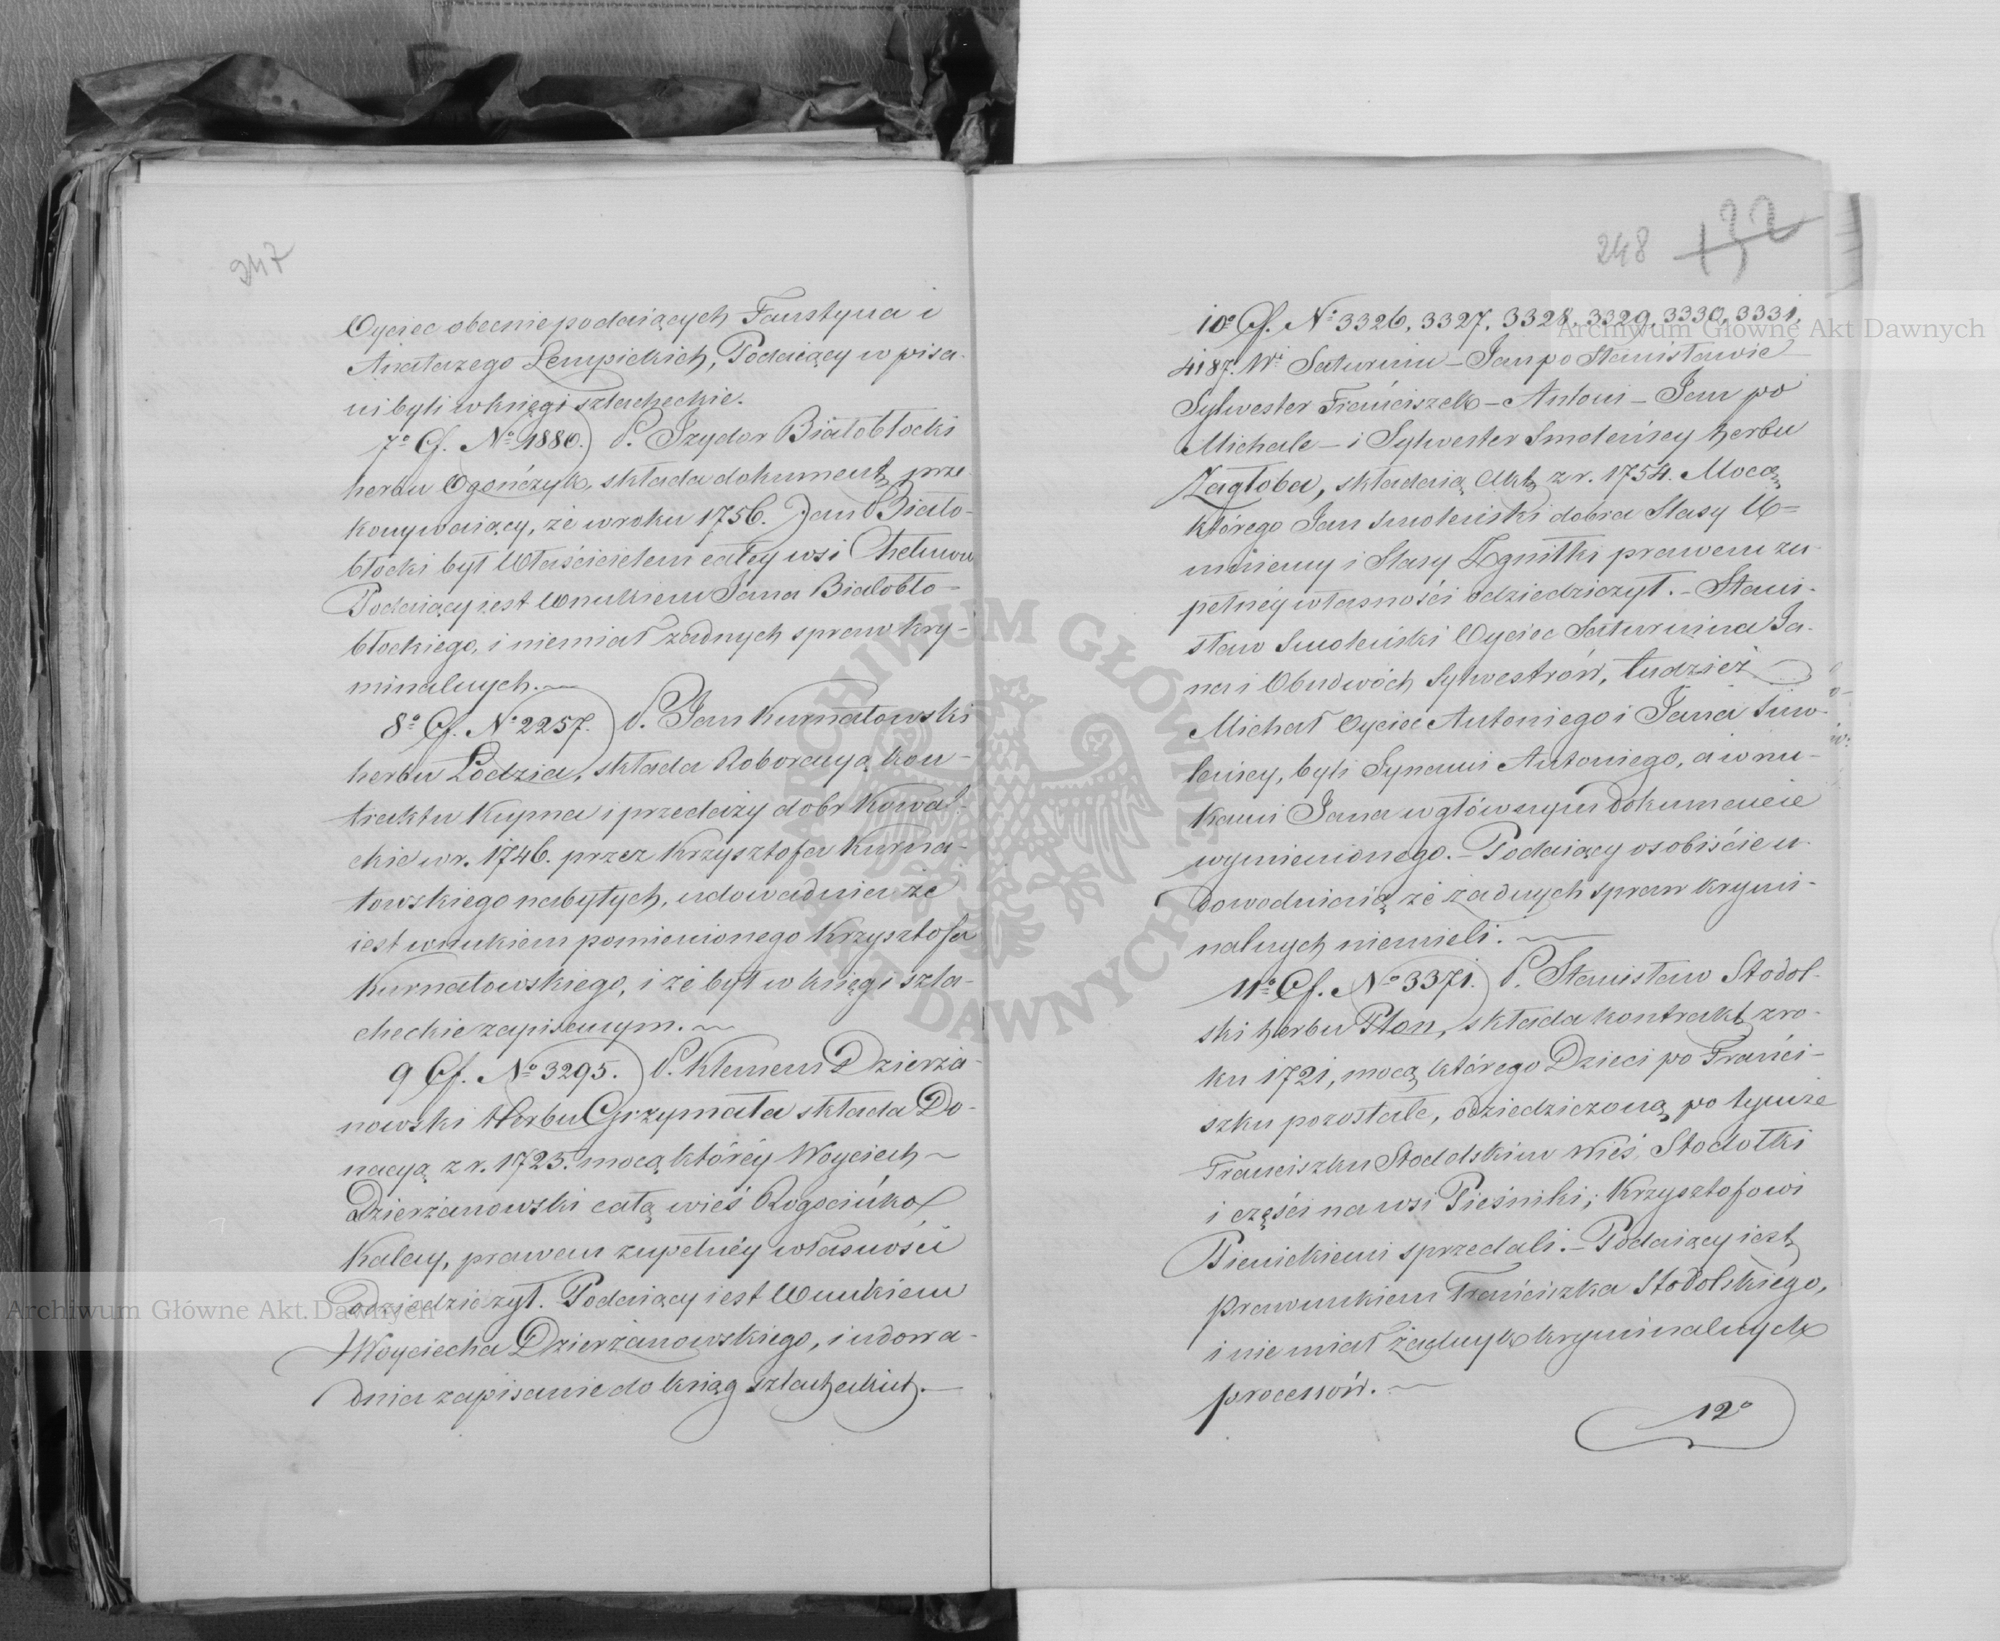 247
Oyciec obecnie podaiących Faustyna i
Anatazego Łempickich, Podaiący w pisa-
ni byli w księgi szlacheckie.
7º Cf. Nº 1880. P. Izydor Białobłocki
herbu Ogończyk, składa dokument prze
konywaiący, że w roku 1756. Jan Biało-
błocki był Właścicielem całey wsi Chełmu
Podaiący iest Wnukiem Jana Białobło-
błockiego, i niemiał żadnych spraw kry-
minalnych.
8º Cf. Nº 2257. P. Jan Kurnatowski
herbu Łodzia, składa Roboracyą kon-
traktu Kupna i przedaży dobr Kowal-
ckie w r. 1746. przez Krzysztofa Kurna-
towskiego nabytych, udowadnia że
iest wnukiem pomienionego Krzysztofa
Kurnatowskiego, i że był w księgi szla-
checkie zapisanym.
9 Cf. Nº 3295. P. Klemens Dzierża-
nowski Herbu Grzymała składa Do-
nacyą z r. 1725. mocą którey Woyciech
Dzierżanowski całą wieś
Kalny, prawem zupełney własności
odziedziczył. Podaiący iest Wnukiem
Woyciecha Dzierżanowskiego, i udowa-
dnia zapisanie do ksiąg szlacheckich.
248 132
10º Cf. Nº 3326, 3327, 3328, 3329, 3330, 3331,
4187. Wi Saturnin – Jan po Stanisławie
Sylwester Franciszek – Antoni – Jan po
Michale – i Sylwester Smoleńscy herbu
Zagłoba, składaią Akt z r. 1754. Mocą
którego Jan Smoleński dobra Stasy U=
miniemy i Stasy Zgnitki prawem zu-
pełney własności odziedziczył. – Stani-
sław Smoleński Oyciec Saturnina Ja-
na i Obudwóch Sylwestrów, tudzież
Michał Oyciec Antoniego i Jana Smo-
leńscy, byli Synami Antoniego, a wnu-
kami Jana w główném dokumencie
wymienionego. – Podaiący osobiście u-
dowodniaią że żadnych spraw krymi-
nalnych niemieli.
11º Cf. Nº 3371. P. Stanisław Stodol-
ski herbu Płon, składa kontrakt z ro-
ku 1721, mocą którego Dzieci po Franci-
szku pozostałe, odziedziczoną po tymże
Franciszku Stodolskim Wieś Stodołki
i części na wsi Pieśniki, Krzysztofowi
Pienickiemi sprzedali. – Podaiący iest
prawnukiem Franciszka Stodolskiego,
i nie miał żadnych kryminalnych
processów.
12º
Archiwum Główne Akt Dawnych
Archiwum Główne Akt Dawnych
ARCHIWUM GŁÓWNE AKT DAWNYCH